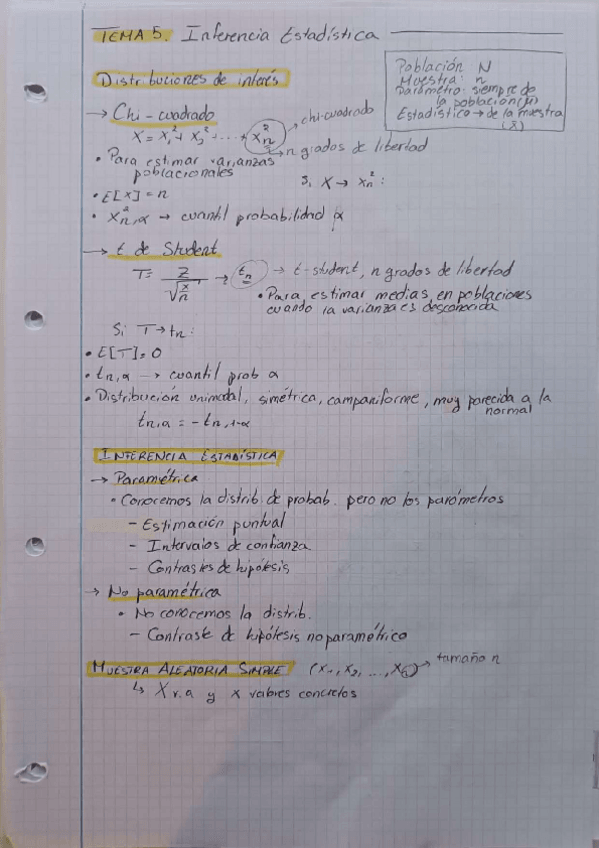 TEMA 5. Inferencia Estadística
Población N
Muestra: n
Parámetro: siempre de
la población (μ)
Estadístico → de la muestra
(x̄)
Distribuciones de interés
→ Chi-cuadrado
X = X₁² + X₂² + ... + Xₙ² → chi-cuadrado
→ n grados de libertad
• Para estimar varianzas
poblacionales
Si X → χₙ²:
• E[X] = n
• χ²ₙ,α → cuantil probabilidad α
→ t de Student
T = Z / √(X/n) → tₙ → t-student, n grados de libertad
• Para estimar medias en poblaciones
cuando la varianza es desconocida
Si T → tₙ:
• E[T] = 0
• tₙ,α → cuantil prob α
• Distribución unimodal, simétrica, campaniforme, muy parecida a la
normal
tₙ,α = -tₙ,₁₋α
INFERENCIA ESTADÍSTICA
→ Paramétrica
• Conocemos la distrib. de probab. pero no los parámetros
- Estimación puntual
- Intervalos de confianza
- Contrastes de hipótesis
→ No paramétrica
• No conocemos la distrib.
- Contraste de hipótesis no paramétrico
MUESTRA ALEATORIA SIMPLE (X₁, X₂, ..., Xₙ) → tamaño n
↳ X v.a y x valores concretos